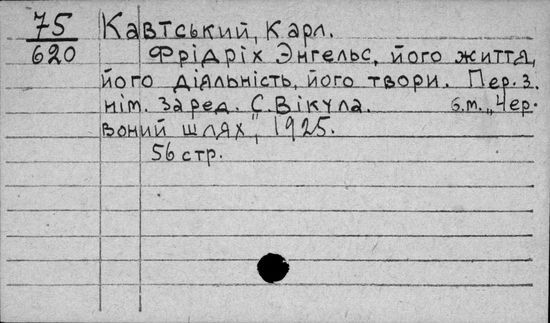 75
620
Кавтський, Карл.
Фрідріх Энгельс, його життя,
його діяльність, його твори. Пер. з.
нім. За ред. С. Вікула. б.т. „Чер-
воний шлях", 1925.
56 стр.